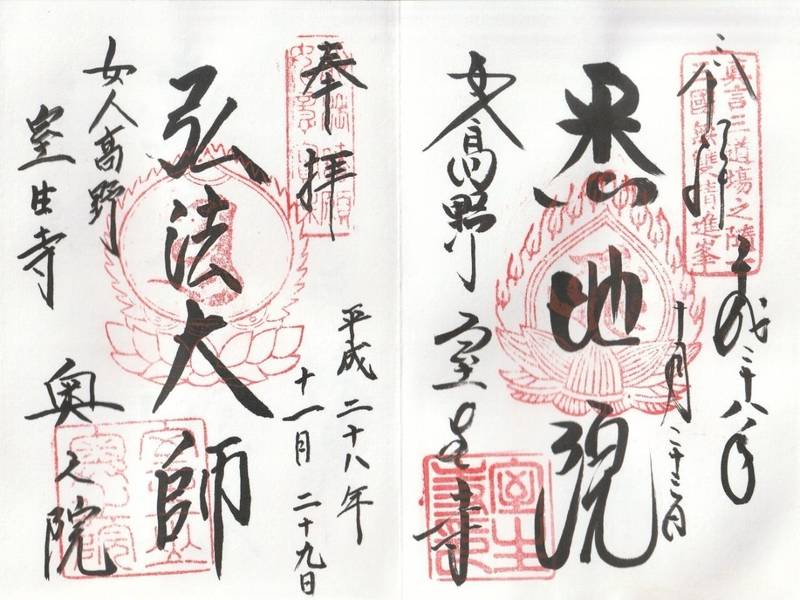 奉拝
眞言三道場之
國無雙精進峯
平成二十八年
十月二十三日
悉地院
女人高野
室生寺
奉拝
平成二十八年
十一月二十九日
弘法大師
女人高野
室生寺
奥之院